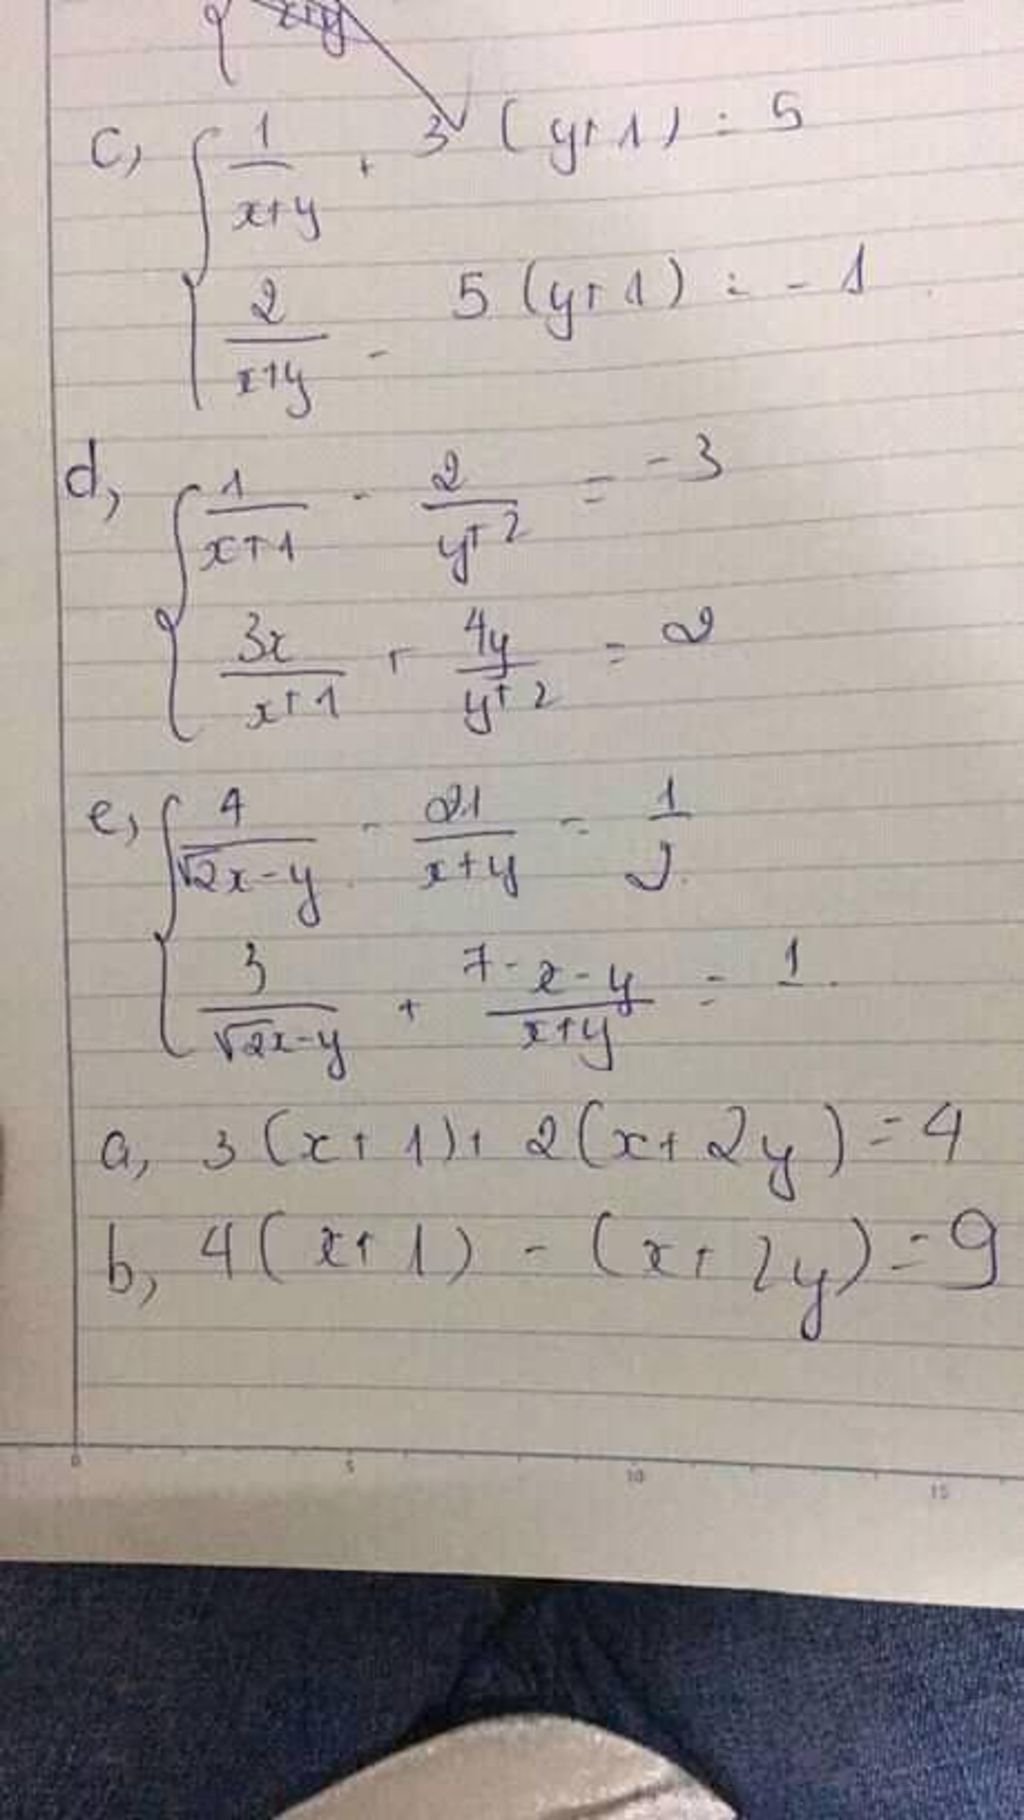 x+y
c, { 1/(x+y) + 3(y+1) = 5
2/(x+y) - 5(y+1) = -1
d, { 1/(x+1) - 2/(y+2) = -3
3x/(x+1) + 4y/(y+2) = 2
e, { 4/(√2x-y) - 21/(x+y) = 1/2
3/(√2x-y) + (7-x-y)/(x+y) = 1.
a, 3(x+1)+ 2(x+2y) = 4
b, 4(x+1) - (x+2y) = 9
0 5 10 15